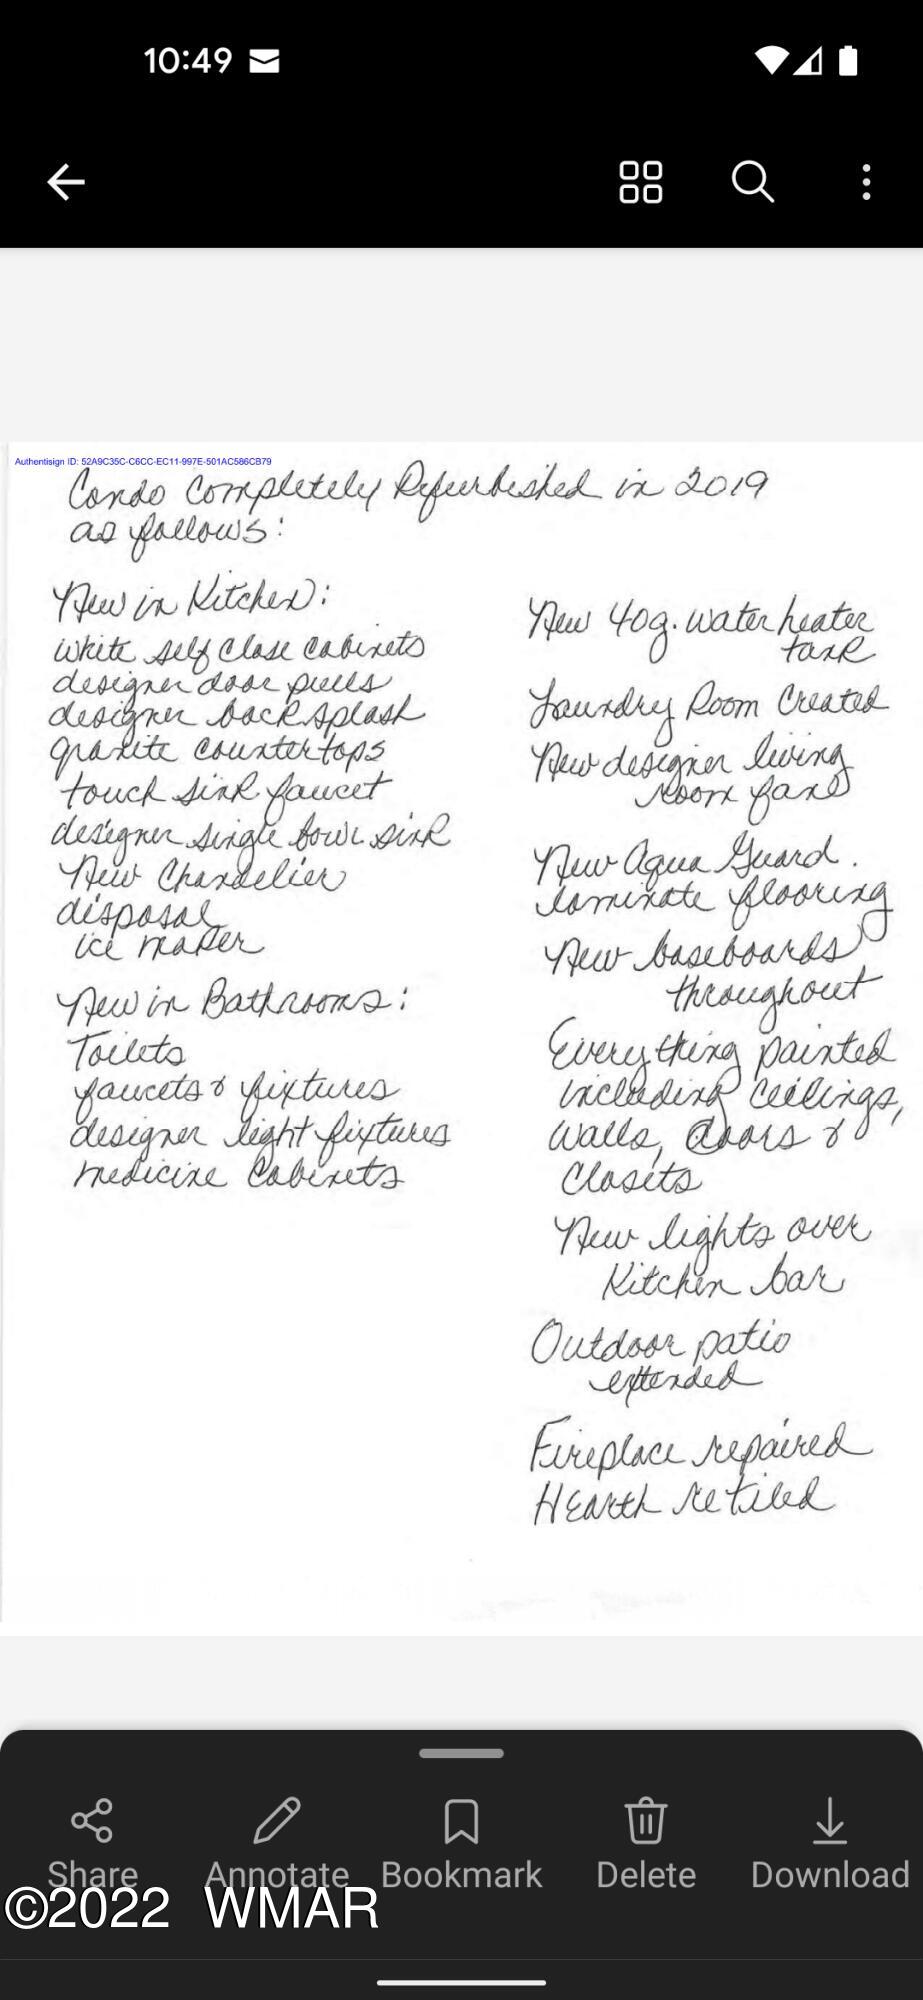 10:49
Authentisign ID: 52A9C35C-C6CC-EC11-997E-501AC586CB79
Condo Completely Refurbished in 2019
as follows:
New in Kitchen:
white self close cabinets
designer door pulls
designer backsplash
granite countertops
touch sink faucet
designer single bowl sink
New Chandelier
disposal
ice maker
New in Bathrooms:
Toilets
faucets & fixtures
designer light fixtures
medicine cabinets
New 40g. water heater
tank
Laundry Room Created
New designer living
room fans
New Aqua Guard.
laminate flooring
New baseboards
throughout
Everything painted
including ceilings,
walls, doors &
Closets
New lights over
Kitchen bar
Outdoor patio
extended
Fireplace repaired
HEarth retiled
Share
Annotate
Bookmark
Delete
Download
©2022 WMAR